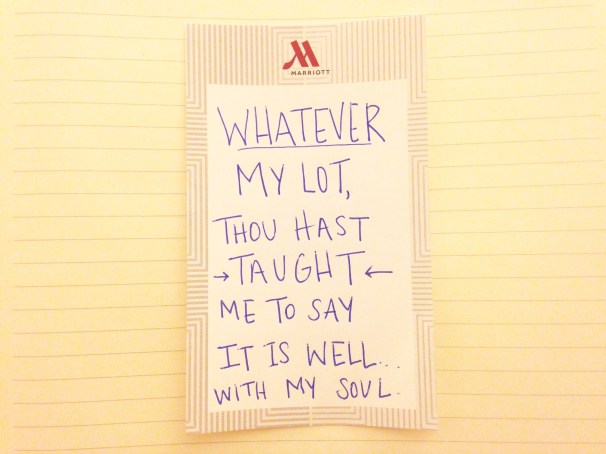 MARRIOTT
WHATEVER
MY LOT,
THOU HAST
→TAUGHT←
ME TO SAY
IT IS WELL...
WITH MY SOUL.